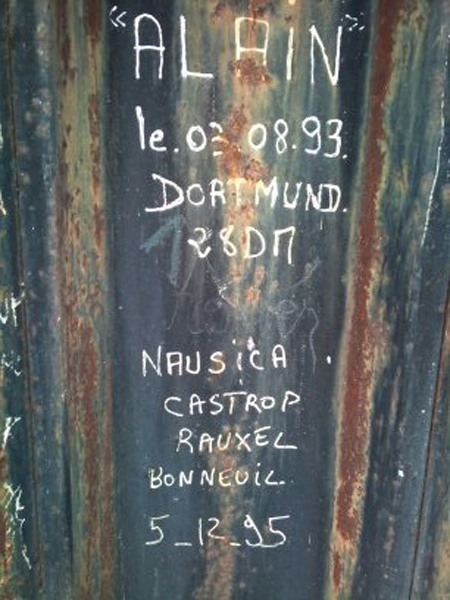 "ALAIN"
le.03.08.93.
DORTMUND.
28DM
NAUSiCA.
CASTROP
RAUXEL
BONNEUiL.
5_12_95